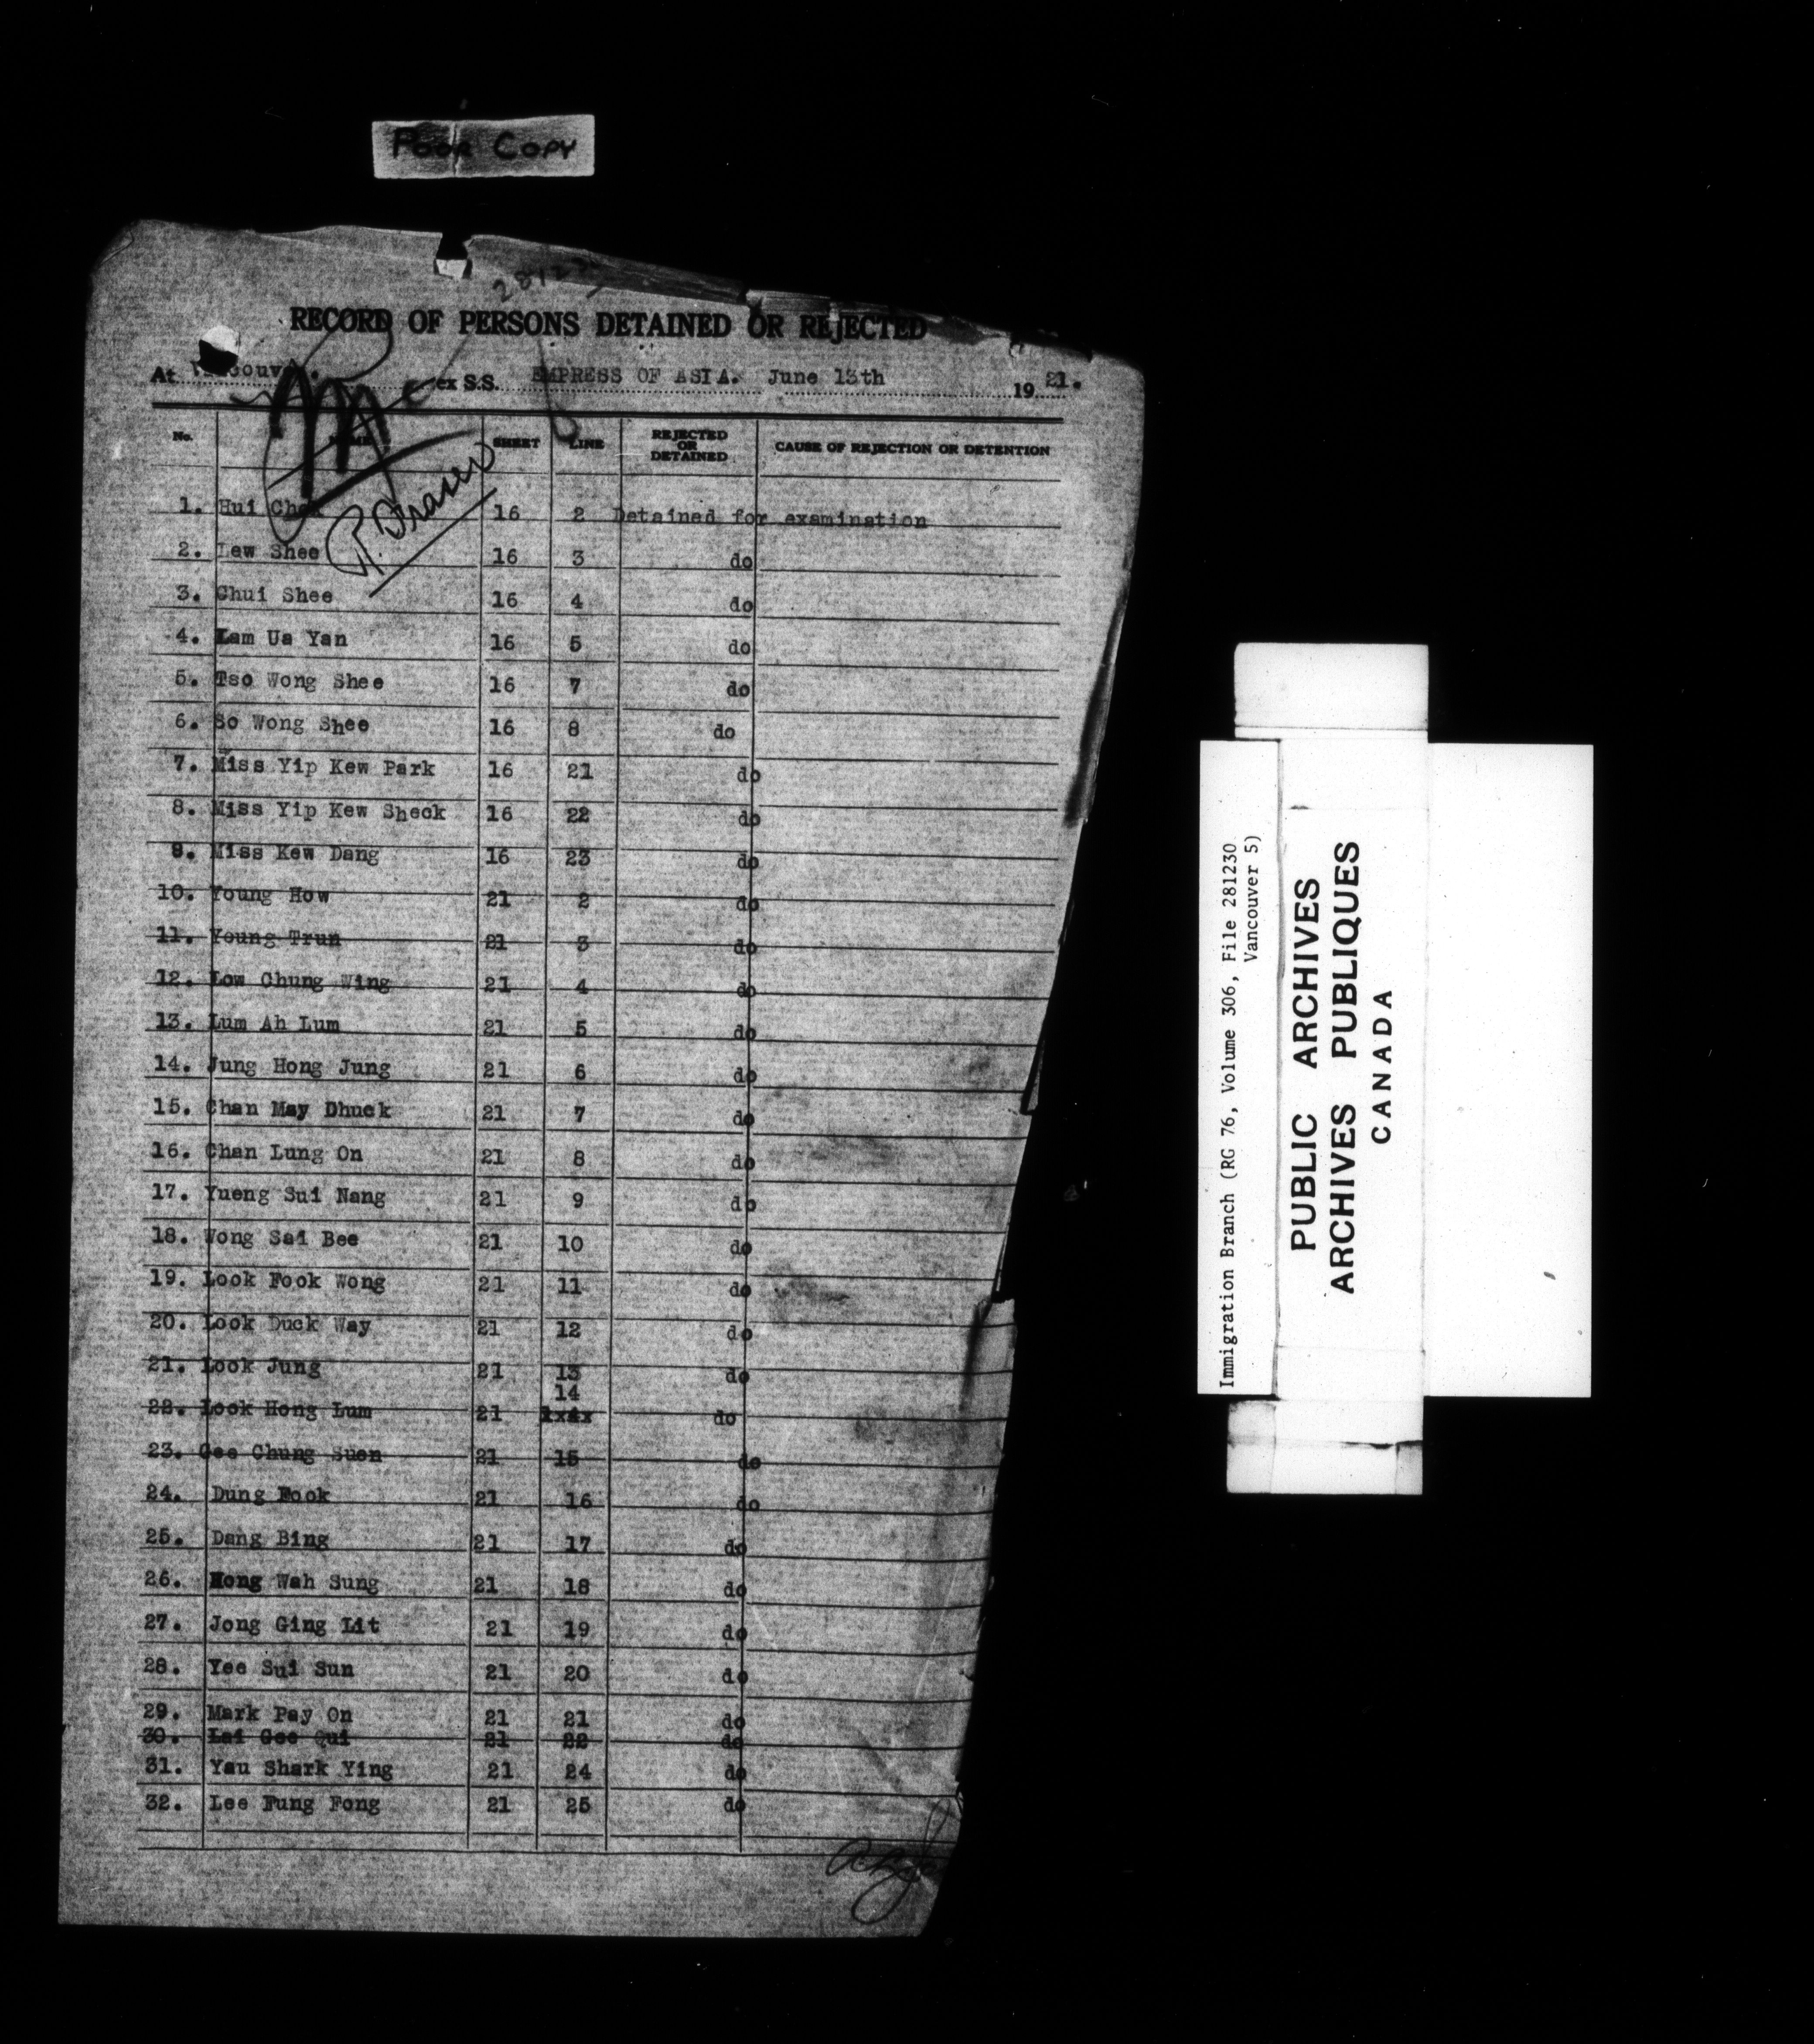 POOR COPY
RECORD OF PERSONS DETAINED OR REJECTED
At Vancouver. ex S.S. EMPRESS OF ASIA. June 13th 1921.
No. NAME SHEET LINE REJECTED OR DETAINED CAUSE OF REJECTION OR DETENTION
1. Hui 16 2 Detained for examination
2. Lew Shee 16 3 do
3. Chui Shee 16 4 do
4. Lam Ua Yan 16 5 do
5. Tso Wong Shee 16 7 do
6. So Wong Shee 16 8 do
7. Miss Yip Kew Park 16 21 do
8. Miss Yip Kew Sheck 16 22 do
9. Miss Kew Dang 16 23 do
10. Young How 21 2 do
11. Young Trun 21 3 do
12. Low Chung Wing 21 4 do
13. Lum Ah Lum 21 5 do
14. Jung Hong Jung 21 6 do
15. Chan May Dhuck 21 7 do
16. Chan Lung On 21 8 do
17. Yueng Sui Nang 21 9 do
18. Wong Sai Bee 21 10 do
19. Look Fook Wong 21 11 do
20. Look Duck Way 21 12 do
21. Look Jung 21 13 do
22. Look Hong Lum 21 14 do
23. Gee Chung Suen 21 15 do
24. Dung Fook 21 16 do
25. Dang Bing 21 17 do
26. Hong Wah Sung 21 18 do
27. Jong Ging Lit 21 19 do
28. Yee Sui Sun 21 20 do
29. Mark Pay On 21 21 do
30. Lai Gee Qui 21 22 do
31. Yau Shark Ying 21 24 do
32. Lee Fung Fong 21 25 do
Immigration Branch (RG 76, Volume 306, File 281230
Vancouver 5)
PUBLIC ARCHIVES
ARCHIVES PUBLIQUES
CANADA